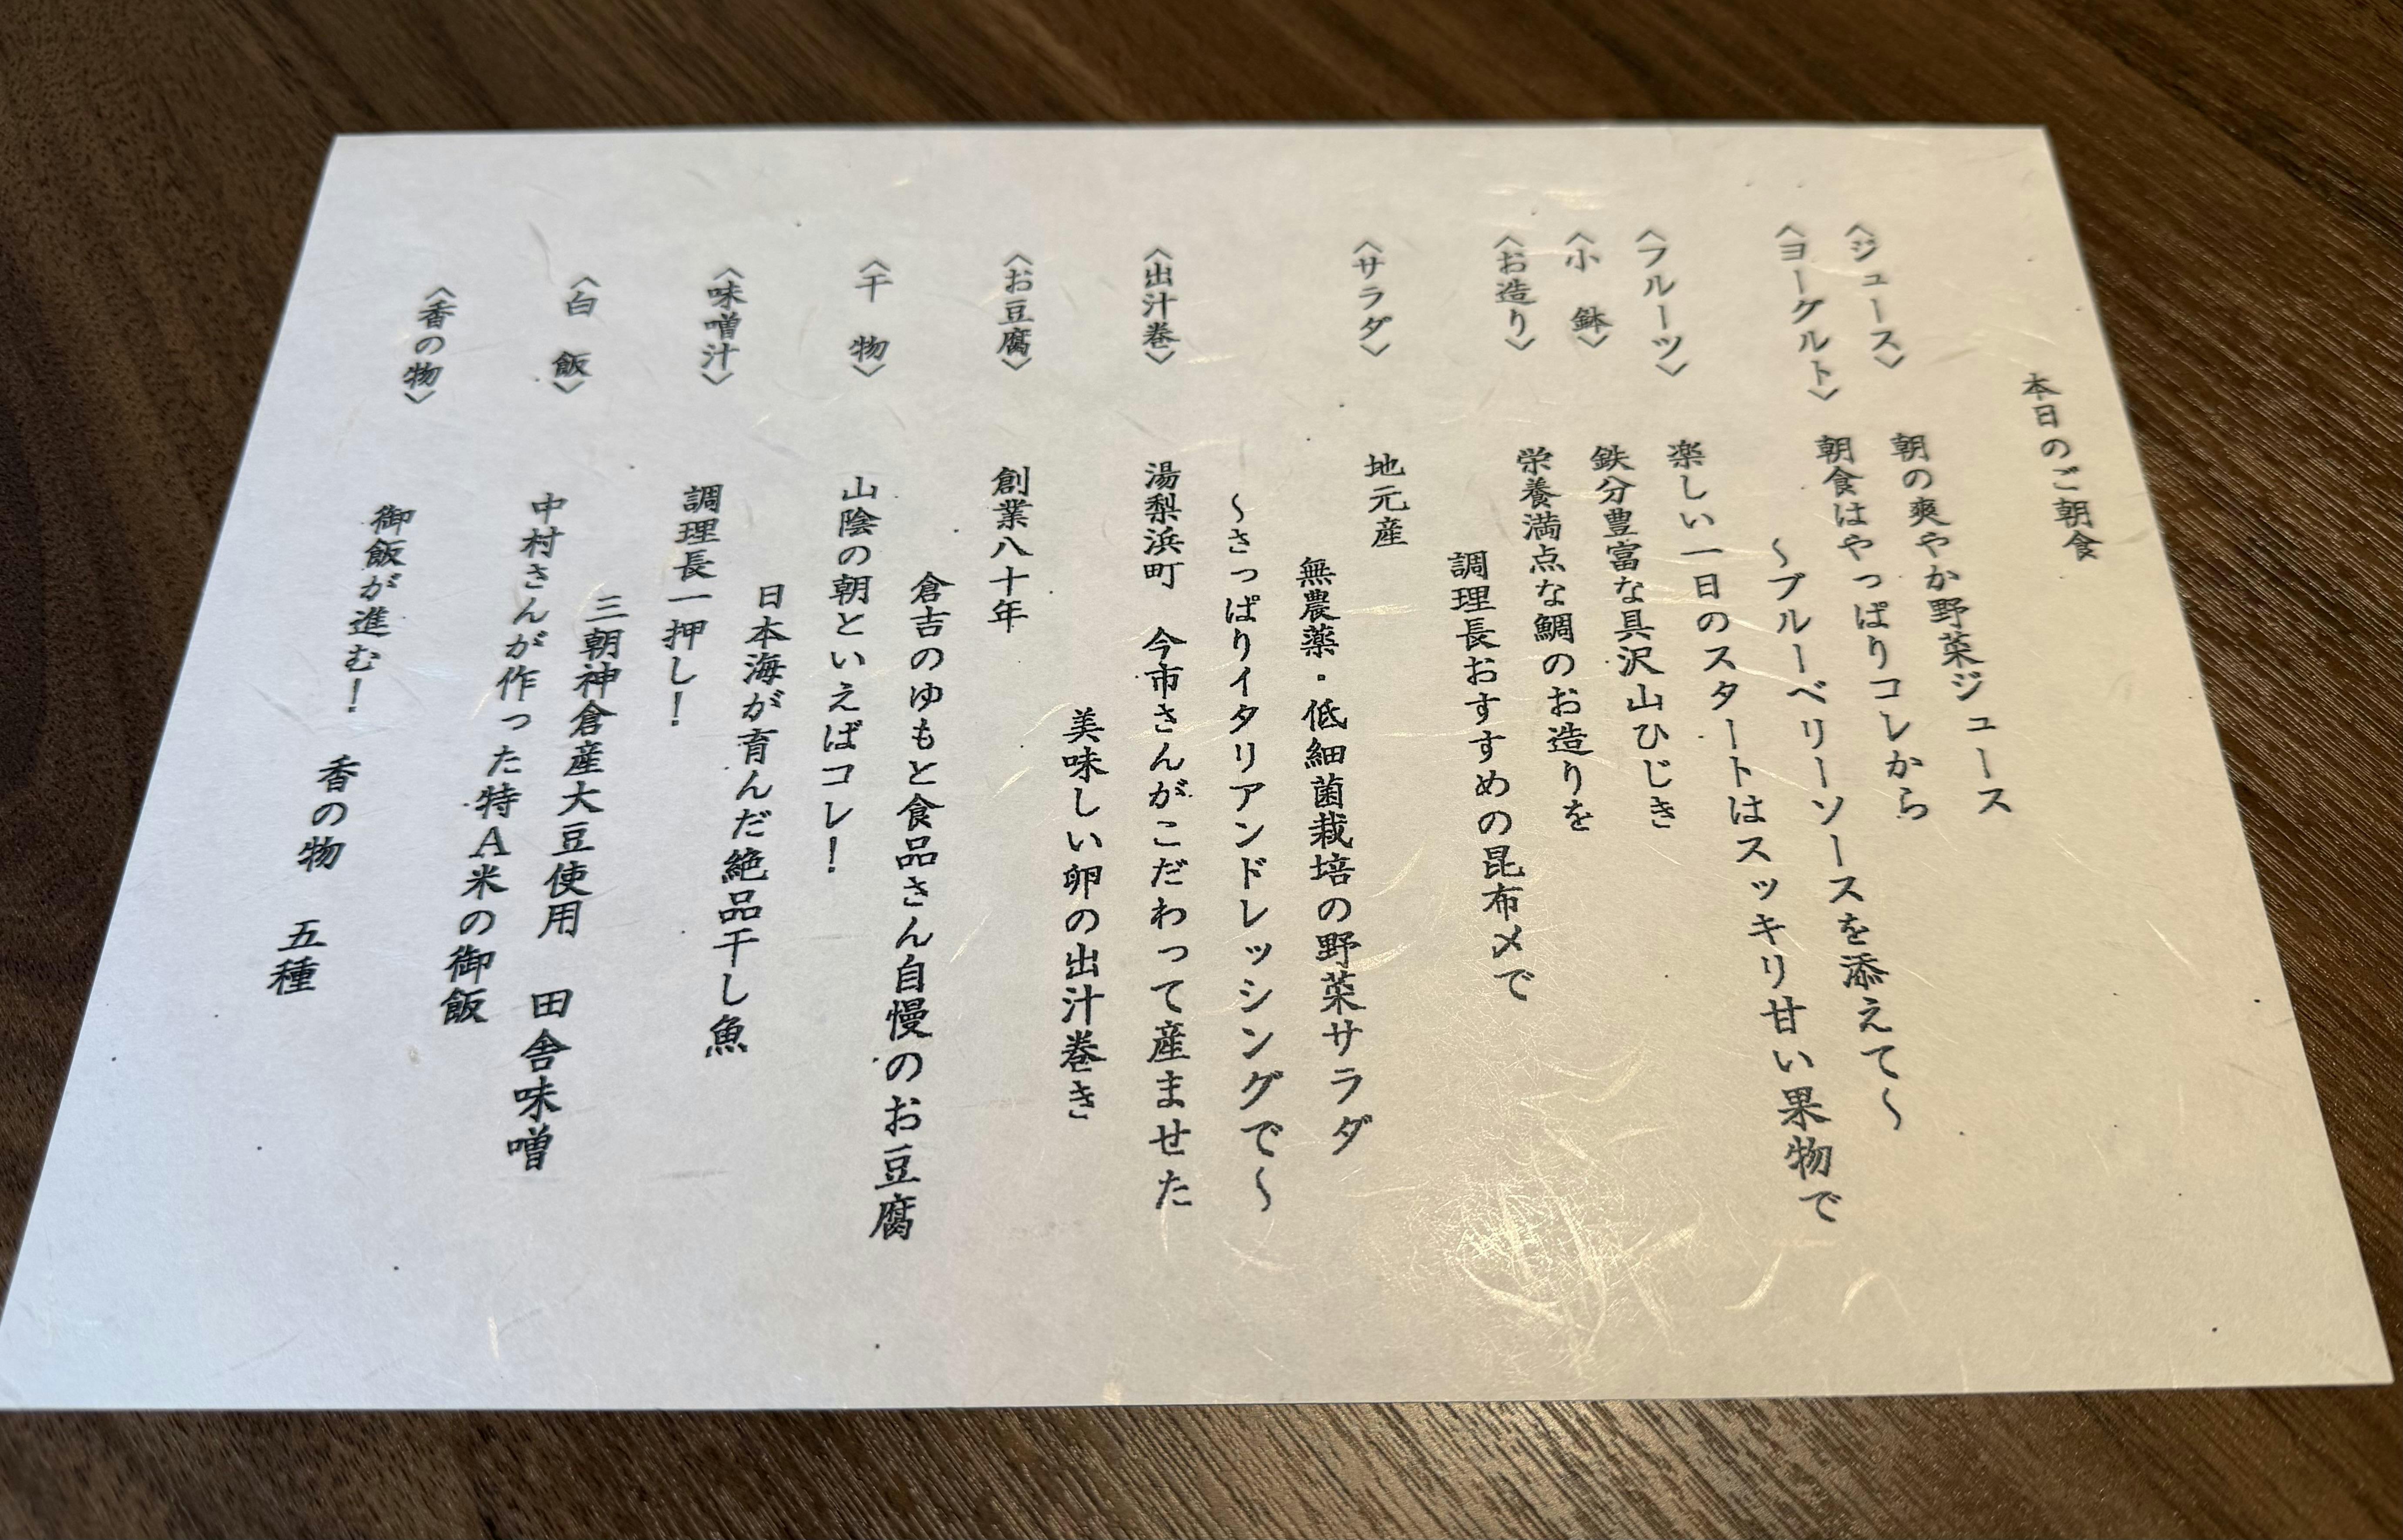 本日のご朝食
〈ジュース〉 朝の爽やか野菜ジュース
〈ヨーグルト〉 朝食はやっぱりコレから
～ブルーベリーソースを添えて～
〈フルーツ〉 楽しい一日のスタートはスッキリ甘い果物で
〈小 鉢〉 鉄分豊富な具沢山ひじき
〈お造り〉 栄養満点な鯛のお造りを
調理長おすすめの昆布〆で
〈サラダ〉 地元産
無農薬・低細菌栽培の野菜サラダ
～さっぱりイタリアンドレッシングで～
〈出汁巻〉 湯梨浜町 今市さんがこだわって産ませた
美味しい卵の出汁巻き
〈お豆腐〉 創業八十年
倉吉のゆもと食品さん自慢のお豆腐
〈干 物〉 山陰の朝といえばコレ！
日本海が育んだ絶品干し魚
〈味噌汁〉 調理長一押し！
三朝神倉産大豆使用 田舎味噌
〈白 飯〉 中村さんが作った特Ａ米の御飯
〈香の物〉 御飯が進む！ 香の物 五種